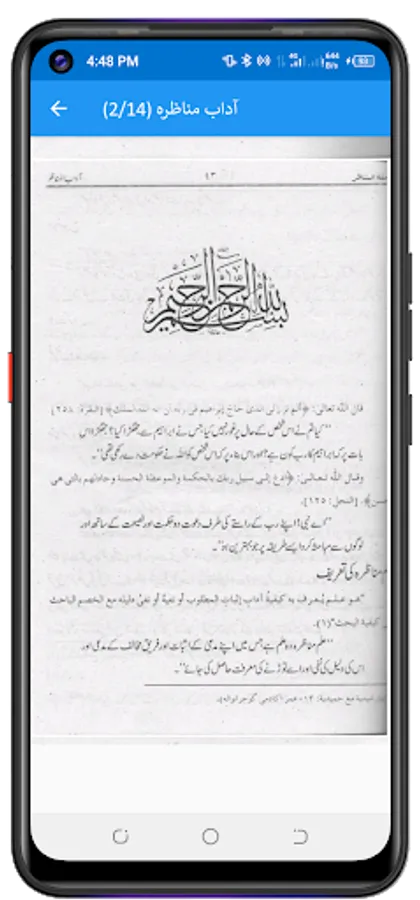 4:48 PM
آداب مناظرہ (2/14)
آداب المناظر ١٣
بسم الله الرحمن الرحيم
قال الله تعالى: ﴿ألم تر إلى الذي حاج إبراهيم في ربه أن آته الله الملك﴾ [البقرة: ٢٥٨]
"کیا تم نے اس شخص کے حال پر غور نہیں کیا جس نے ابراہیم سے جھگڑا کیا؟ جھگڑا اس
بات پر کہ ابراہیم کا رب کون ہے؟ اور اس بناء پر کہ اس شخص کو اللہ نے حکومت دے رکھی تھی"۔
وقال الله تعالى: ﴿ادع إلى سبيل ربك بالحكمة والموعظة الحسنة وجادلهم بالتي هي
[النحل: ١٢٥].
"اے نبی! اپنے رب کے راستے کی طرف دعوت دو حکمت اور نصیحت کے ساتھ اور
لوگوں سے مباحثہ کرو ایسے طریقہ پر جو بہترین ہو"۔
مناظرہ کی تعریف
"هو علم يُعرف به كيفية آداب إثبات المطلوب أو نفيه أو نفي دليله مع الخصم
كيفية البحث"(١).
"علم مناظرہ وہ علم ہے جس میں اپنے مدعی کے اثبات اور فریق مخالف کے مدعی اور
اس کی دلیل کی نفی اور اسے توڑنے کی معرفت حاصل کی جائے"۔